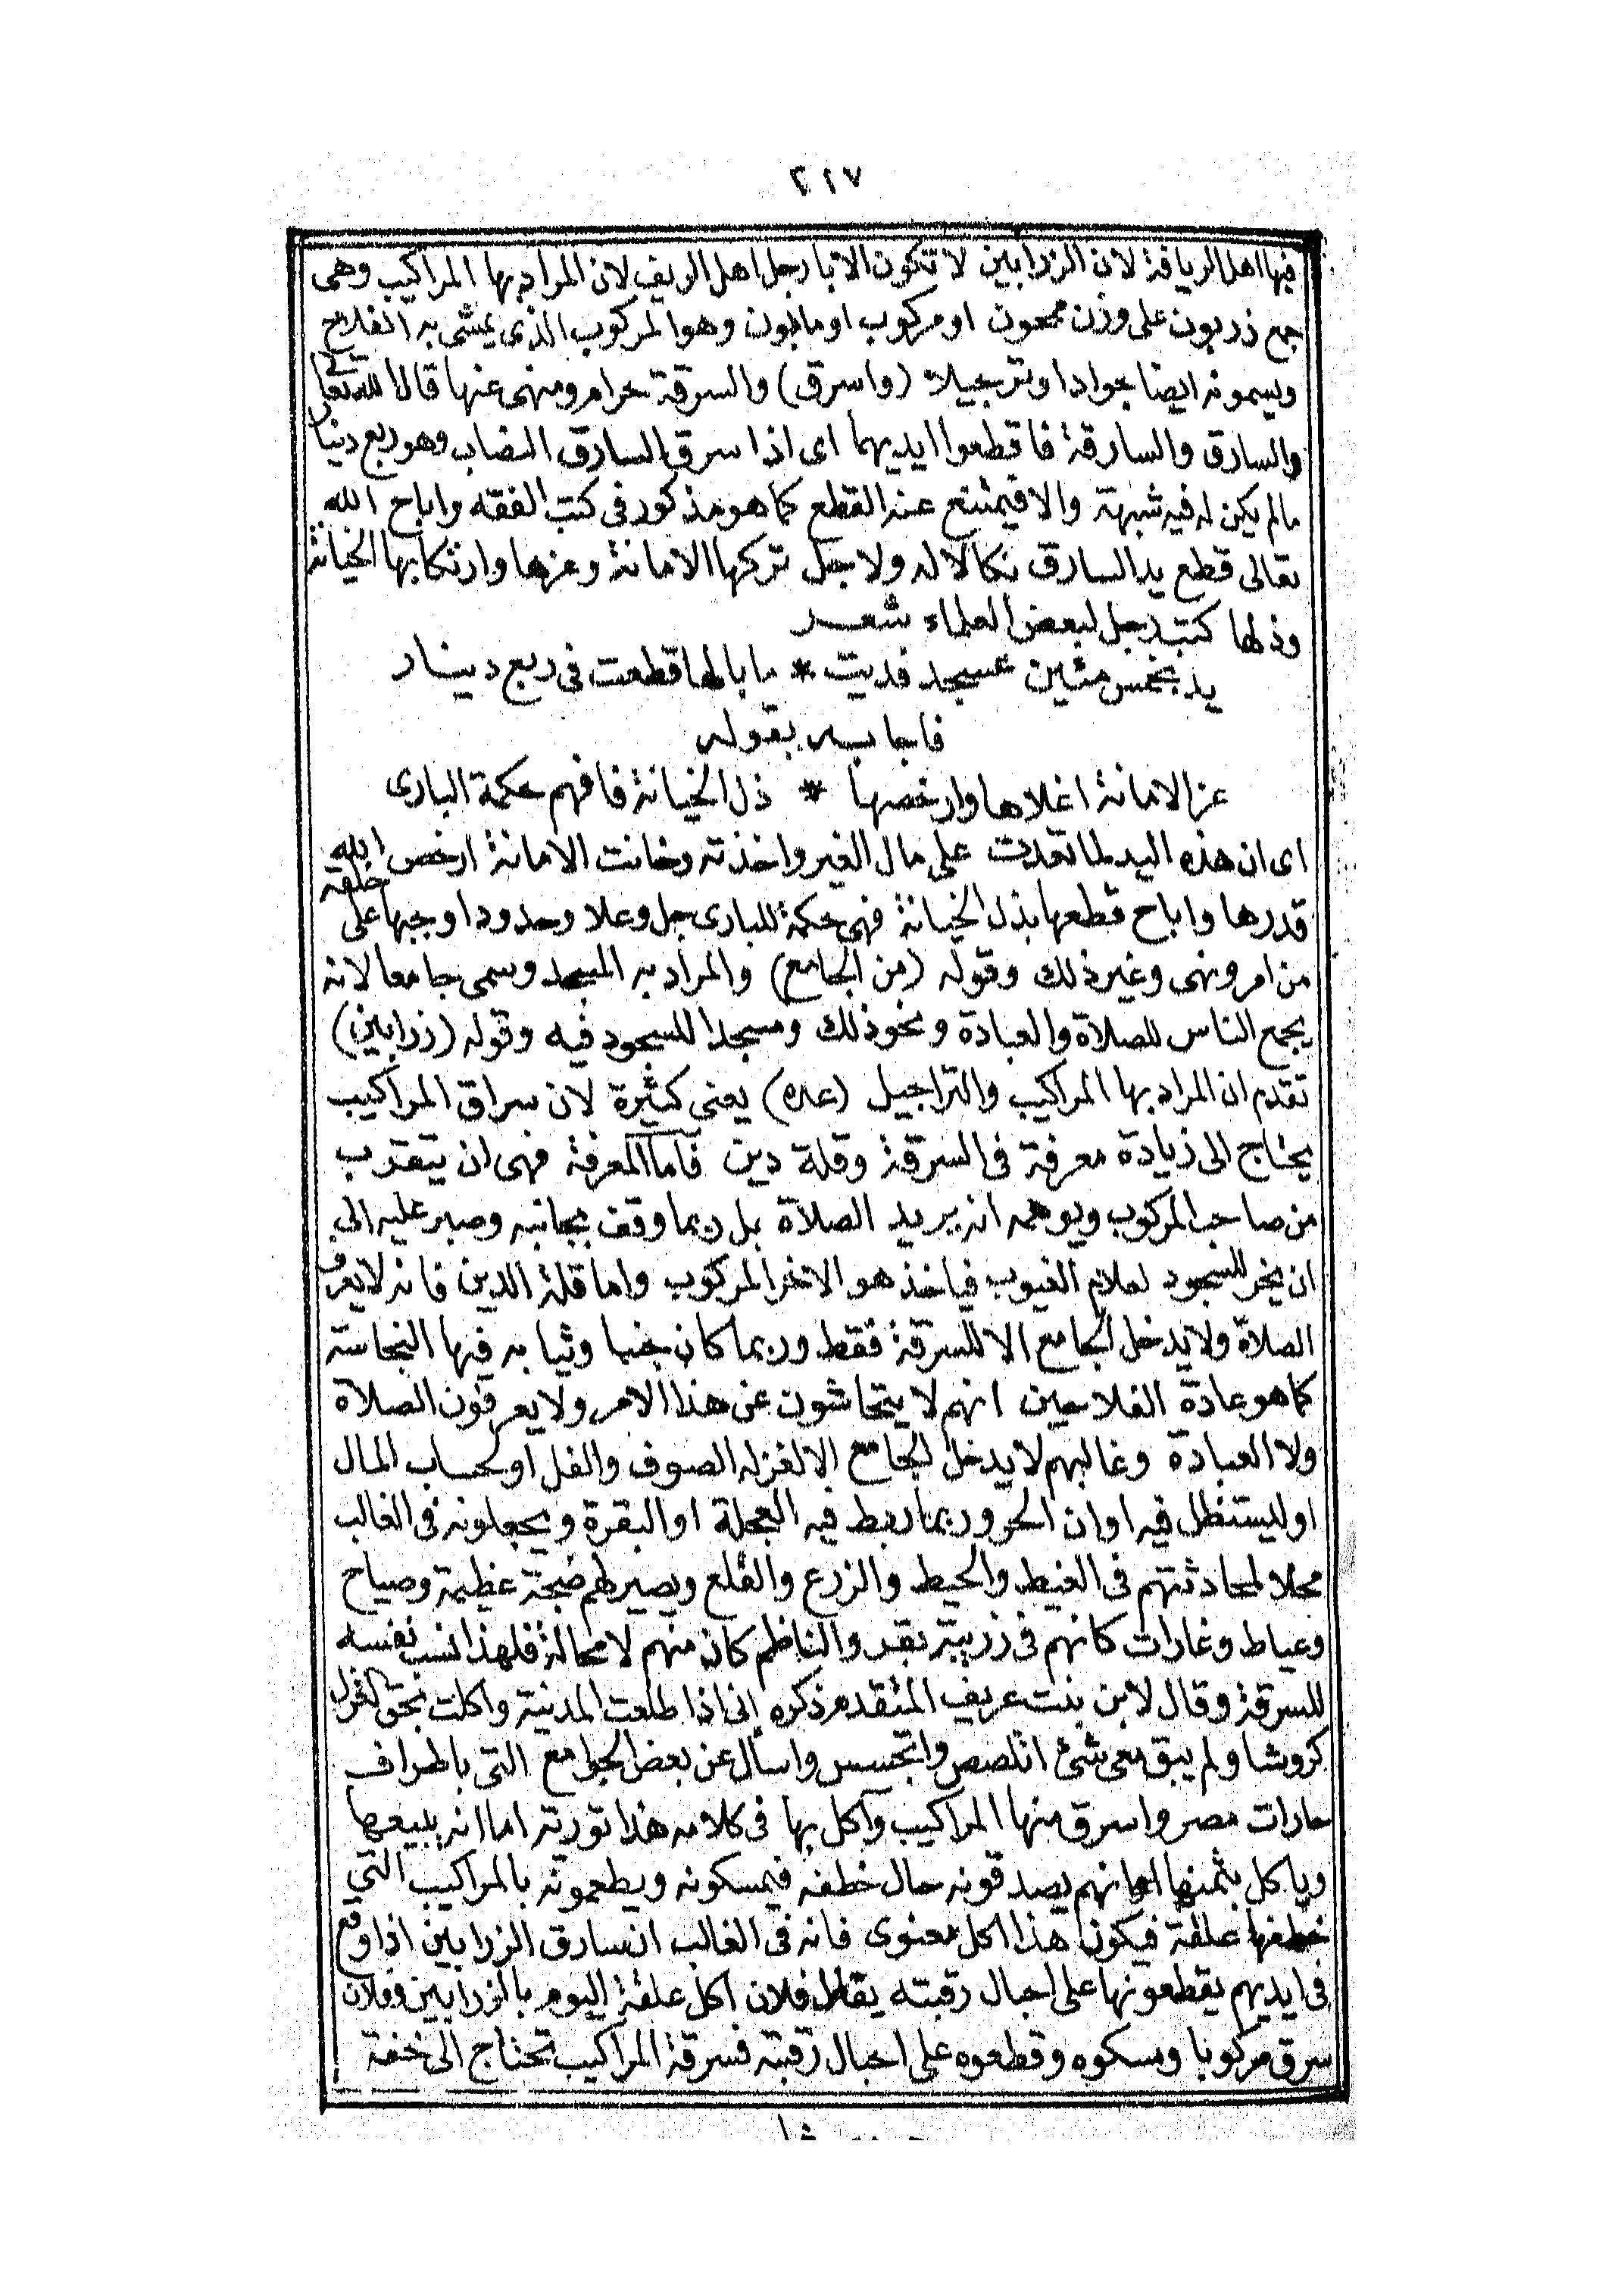 ٢١٧
فيها اهل الريافة لان الزرابين لا تكون الا بارجل اهل الريف لان المراد بها المراكيب وهى
جمع زربون على وزن مجعون او مركوب او مابون وهو المركوب الذى يمشى به الفلاح
ويسمونه ايضا جوادا وترجيلا (واسرق) والسرقة حرام ومنهى عنها قال الله تعالى
والسارق والسارقة فاقطعوا ايديهما اى اذا سرق السارق النصاب وهو ربع دينار
مالم يكن له فيه شبهة والا فيمتنع عنه القطع كما هو مذكور فى كتب الفقه واباح الله
تعالى قطع يد السارق نكالا له ولاجل تركها الامانة وعزها وارتكابها الخيانة
وذلها كتب رجل لبعض العلماء شعر
يد بخمس مئين عسجد فديت * ما بالها قطعت فى ربع دينار
فاجابه بقوله
عز الامانة اغلاها وارخصها * ذل الخيانة فافهم حكمة البارى
اى ان هذه اليد لما تعدت على مال الغير واخذته وخانت الامانة ارخص الله
قدرها واباح قطعها بذل الخيانة فهى حكمة للبارى جل وعلا وحدود اوجبها على خلقه
من امر ونهى وغير ذلك وقوله (من الجامع) والمراد به المسجد وسمى جامعا لانه
يجمع الناس للصلاة والعبادة ونحو ذلك ومسجدا للسجود فيه وقوله (زرابين)
تقدم ان المراد بها المراكيب والتراجيل (عده) يعنى كثيرة لان سراق المراكيب
يحتاج الى زيادة معرفة فى السرقة وقلة دين فاما المعرفة فهى ان يتقرب
من صاحب المركوب ويوهمه انه يريد الصلاة بل ربما وقف بجانبه وصبر عليه الى
ان يخر للسجود لعلام الغيوب فياخذ هو الاخر المركوب واما قلة الدين فانه لا يعرف
الصلاة ولا يدخل الجامع الا للسرقة فقط وربما كان جنبا وثيابه فيها النجاسة
كما هو عادة الفلاحين انهم لا يتحاشون عن هذا الامر ولا يعرفون الصلاة
ولا العبادة وغالبهم لا يدخل الجامع الا لغزله الصوف والفل او لحساب المال
او ليستظل فيه اوان الحر وربما ربط فيه العجلة او البقرة ويجعلونه فى الغالب
محلا لمحادثتهم فى الغيط والحيط والزرع والقلع ويصير لهم ضجة عظيمة وصياح
وعياط وغارات كانهم فى زريبة بقر والناظم كان منهم لا محالة فلهذا نسب نفسه
للسرقة وقال لابن بنت عريف المتقدم ذكره انى اذا طلعت المدينة واكلت بحق الغزل
كروشا ولم يبق معى شئ اتلصص واتجسس واسال عن بعض الجوامع التى باطراف
حارات مصر واسرق منها المراكيب وآكل بها فى كلامه هذا تورية اما انه يبيعها
وياكل بثمنها انهم يصدقونه حال خطفه فيمسكونه ويطعمونه بالمراكيب التى
خطفها علقة فيكون هذا اكل معنوى فانه فى الغالب ان سارق الزرابين اذا وقع
فى ايديهم يقطعونها على احبال رقبته يقال فلان اكل علقة اليوم بالزرابين وفلان
سرق مركوبا ومسكوه وقطعوه على احبال رقبته فسرقة المراكيب تحتاج الى خفة